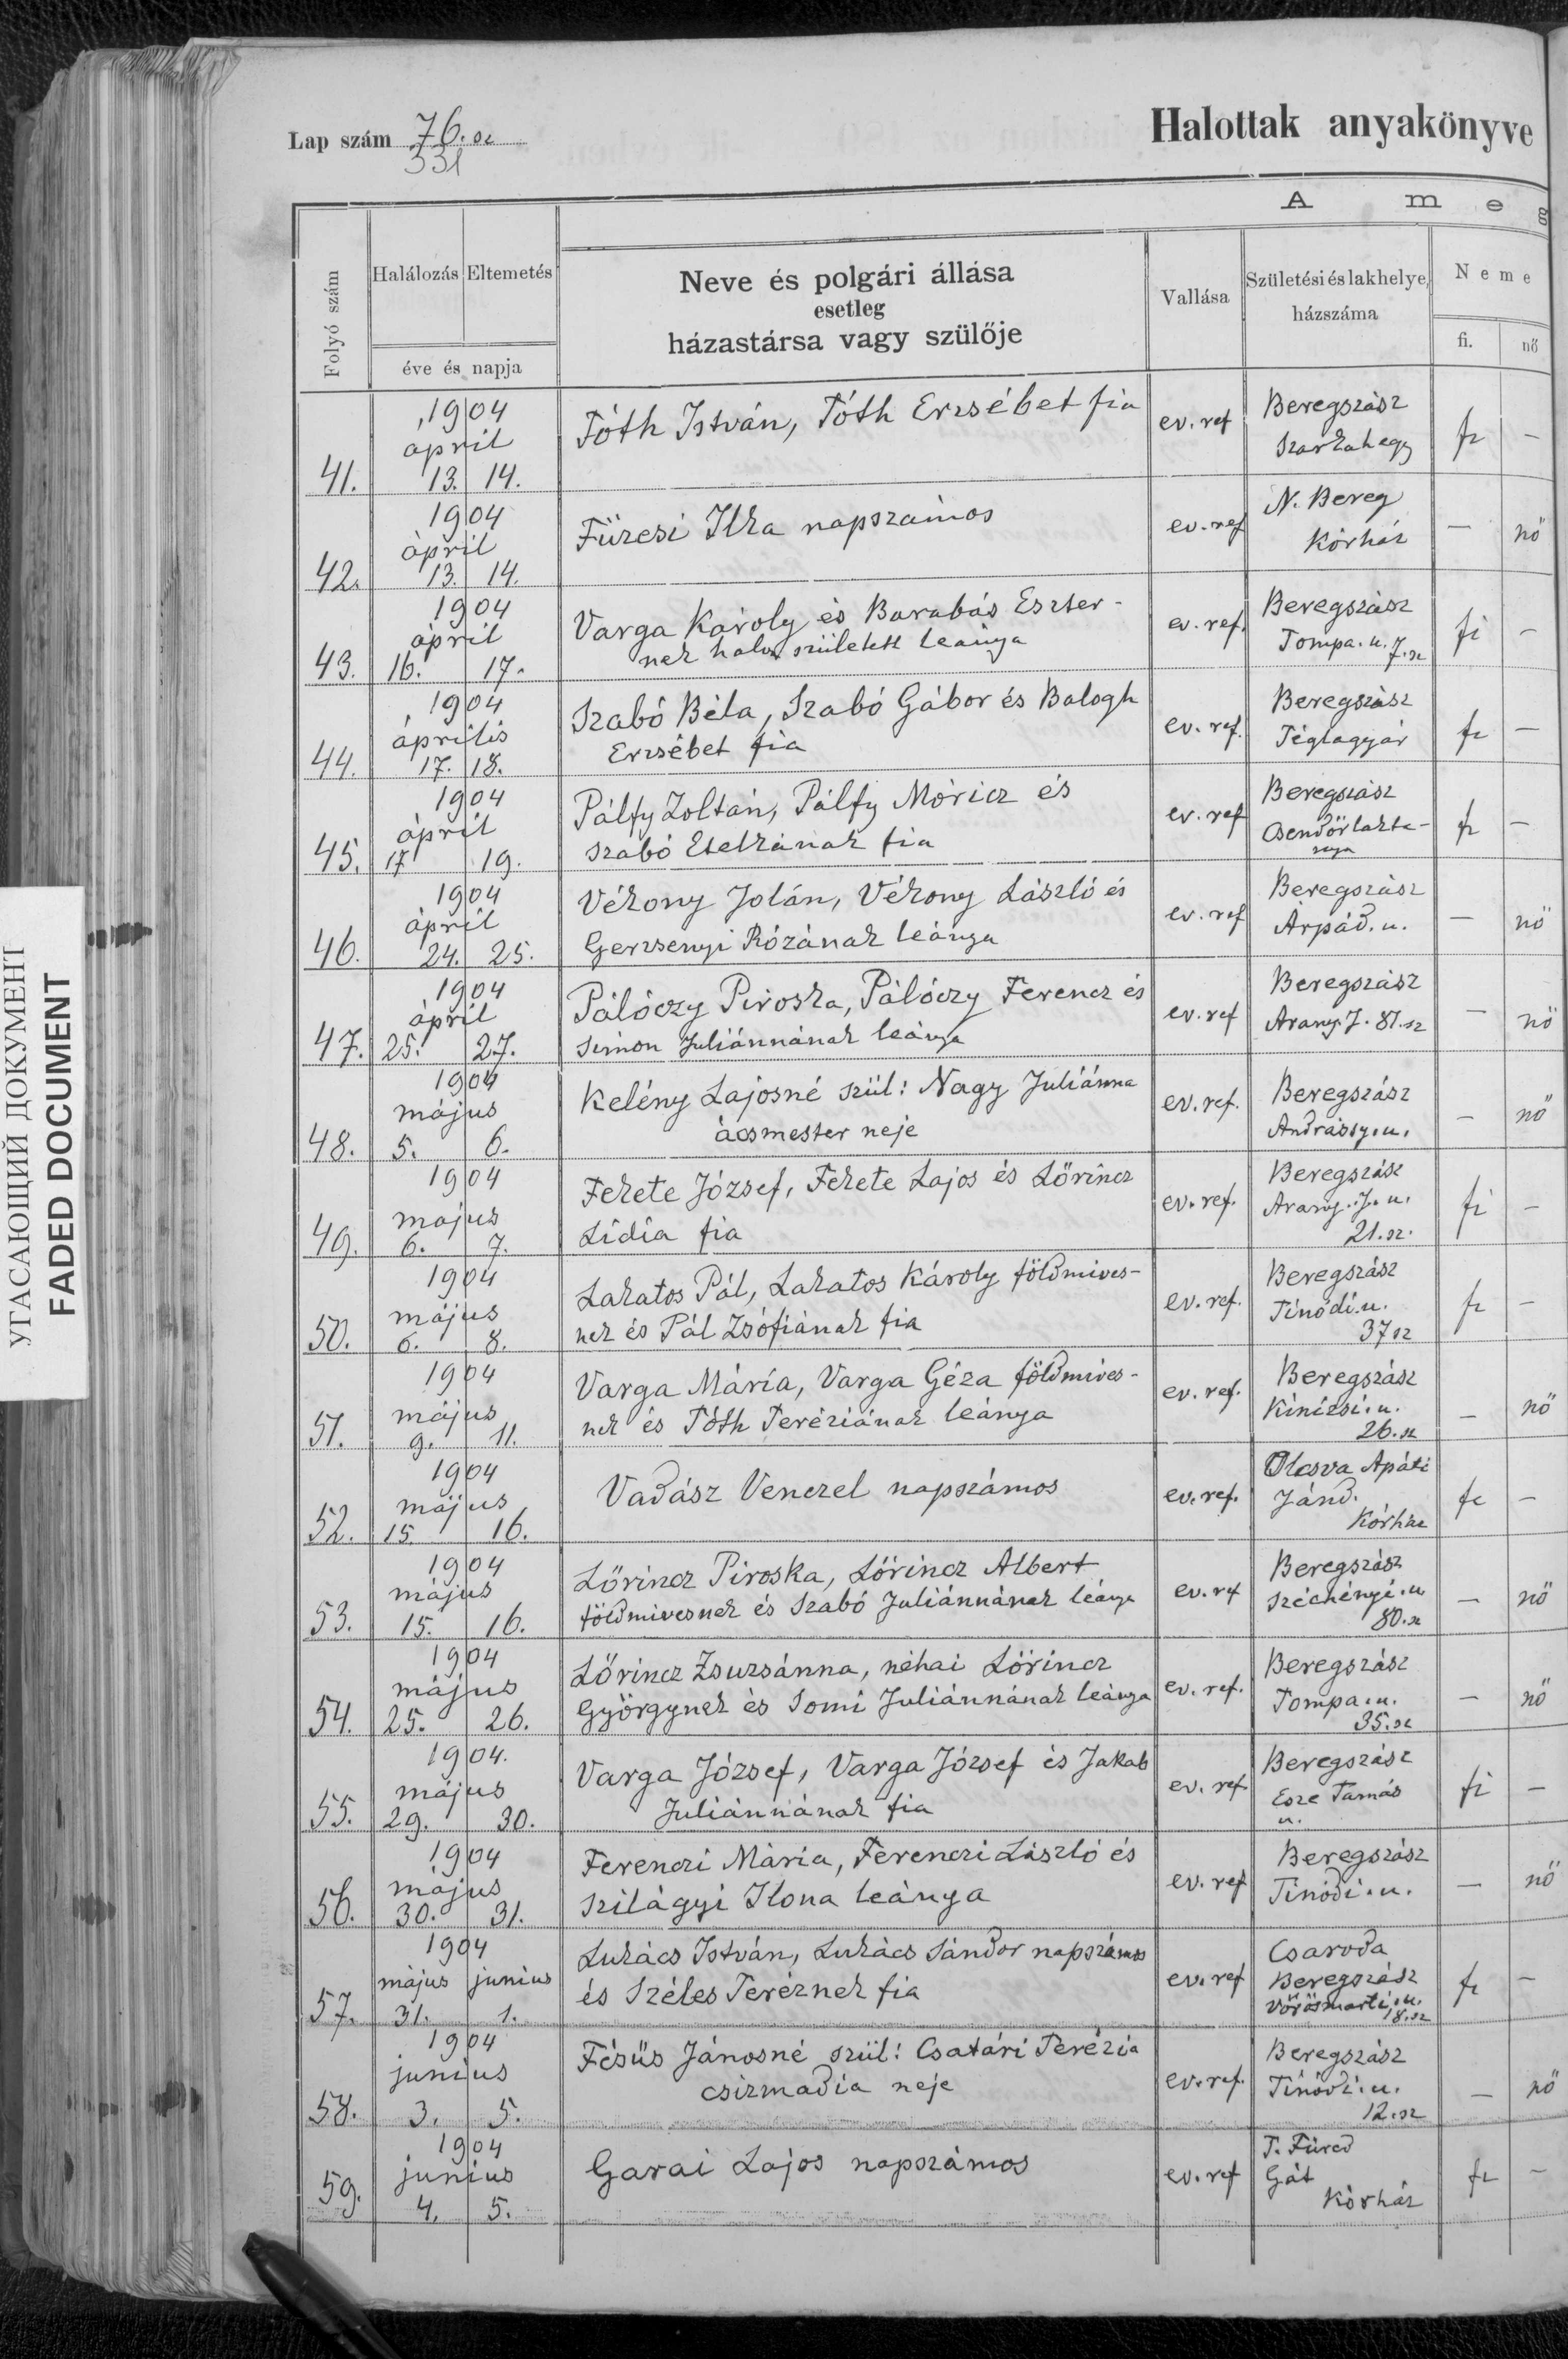 Lap szám 76. sz
331
Halottak anyakönyve
A m e
Folyó szám
Halálozás Eltemetés
éve és napja
Neve és polgári állása
esetleg
házastársa vagy szülője
Vallása
Születési és lakhelye,
házszáma
Neme
fi. nő
41. 1904 april 13. 14. Tóth István, Tóth Erzsébet fia ev. ref Beregszász Szarkahegy fi –
42. 1904 ápril 13. 14. Füzesi Ilka napszámos ev. ref N. Bereg Kórház – nő
43. 1904 ápril 16. 17. Varga Károly és Barabás Eszter-
nek halva született leánya ev. ref. Beregszász Tompa. u. 7. sz fi –
44. 1904 április 17. 18. Szabó Béla, Szabó Gábor és Balogh
Erzsébet fia ev. ref. Beregszász Téglagyár fi –
45. 1904 ápril 17 19. Pálfy Zoltán, Pálfy Móricz és
Szabó Etelkának fia ev. ref Beregszász Csendőrlakta-
nya fi –
46. 1904 ápril 24. 25. Vékony Jolán, Vékony László és
Gerzsenyi Rózának leánya ev. ref Beregszász Árpád. u. – nő
47. 1904 ápril 25. 27. Pálóczy Piroska, Pálóczy Ferencz és
Simon Juliánnának leánya ev. ref Beregszász Arany J. 81. sz – nő
48. 1904 május 5. 6. Kelény Lajosné szül: Nagy Juliánna
ácsmester neje ev. ref. Beregszász Andrássy. u. – nő
49. 1904 majus 6. 7. Fekete József, Fekete Lajos és Lőrincz
Lídia fia ev. ref. Beregszász Arany. J. u.
21. sz. fi –
50. 1904 május 6. 8. Lakatos Pál, Lakatos Károly földmives-
nek és Pál Zsófiának fia ev. ref. Beregszász Tinódi. u.
37 sz fi –
51. 1904 május 9. 11. Varga Mária, Varga Géza földmives-
nek és Tóth Teréziának leánya ev. ref. Beregszász Kinizsi. u.
26. sz – nő
52. 1904 május 15. 16. Vadász Venczel napszámos ev. ref. Olcsva Apáti
Jánd.
Kórház fi –
53. 1904 május 15. 16. Lőrincz Piroska, Lőrincz Albert
földmivesnek és Szabó Juliánnának leánya ev. ref Beregszász Széchényi. u
80. sz – nő
54. 1904 május 25. 26. Lőrincz Zsuzsánna, néhai Lőrincz
Györgynek és Somi Juliánnának leánya ev. ref. Beregszász Tompa. u.
35. sz – nő
55. 1904. május 29. 30. Varga József, Varga József és Jakab
Juliánnának fia ev. ref Beregszász Esze Tamás
u. fi –
56. 1904 május 30. 31. Ferenczi Mária, Ferenczi László és
Szilágyi Ilona leánya ev. ref Beregszász Tinódi. u. – nő
57. 1904 május junius 31. 1. Lukács István, Lukács Sándor napszámos
és Széles Teréznek fia ev. ref Csaroda
Beregszász
Vörösmarti. u.
18. sz fi –
58. 1904 junius 3. 5. Fésüs Jánosné szül: Csatári Terézia
csizmadia neje ev. ref. Beregszász Tinódi. u.
12. sz – nő
59. 1904 junius 4. 5. Garai Lajos napszámos ev. ref T. Füred
Gát
Kórház fi –
УГАСАЮЩИЙ ДОКУМЕНТ
FADED DOCUMENT